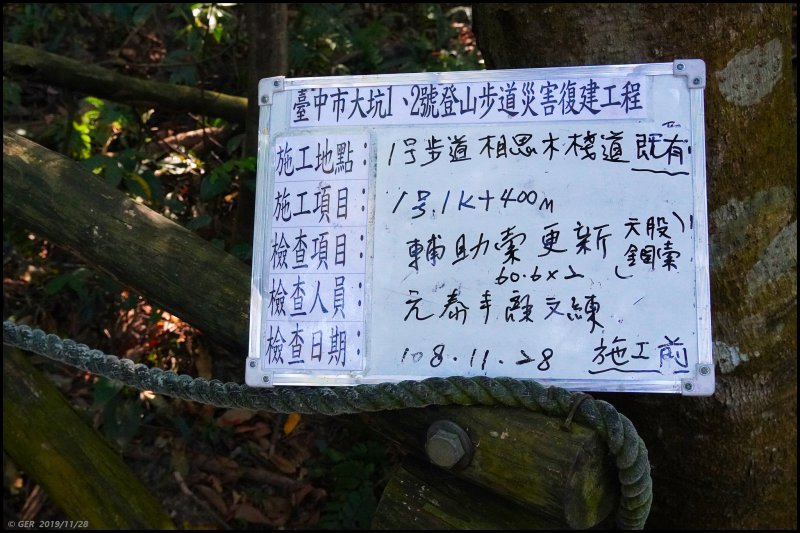 臺中市大坑1、2號登山步道災害復建工程
施工地點： 1号步道相思木棧道既有
施工項目： 1号.1K+400M
檢查項目： 輔助索更新(六股鋼索)
60.6x2
檢查人員： 元泰 文練
檢查日期： 108.11.28 施工前
© GER 2019/11/28